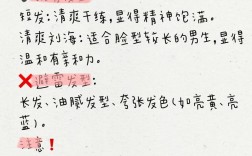 短发：清爽干练，显得精神饱满。
清爽刘海：适合脸型较长的男生，显得
温和有亲和力。
❌避雷发型：
长发、油腻发型、夸张发色(如亮黄、亮
蓝)。
注意❗